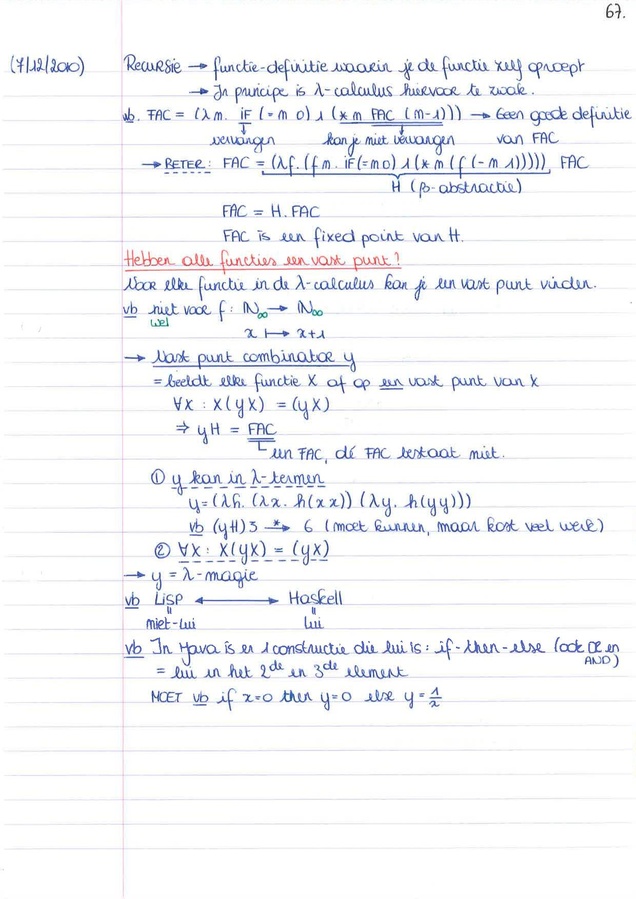 67.
(7/12/2010) Recursie → functie-definitie waarin je de functie zelf oproept
→ In principe is λ-calculus hiervoor te zwak.
vb. FAC = (λm. IF (=m 0) 1 (* m FAC (m-1))) → Geen goede definitie
vervangen kan je niet vervangen van FAC
→ BETER: FAC = (λf. (fm. IF(=m0) 1(*m(f(-m 1))))) FAC
H (β-abstractie)
FAC = H. FAC
FAC is een fixed point van H.
Hebben alle functies een vast punt?
Voor elke functie in de λ-calculus kan je een vast punt vinden.
vb niet voor f: ℕ∞ → ℕ∞
wel
x ↦ x+1
→ Vast punt combinator y
= beeldt elke functie X af op een vast punt van X
∀X : X(yX) = (yX)
⇒ yH = FAC
een FAC, dé FAC bestaat niet.
① y kan in λ-termen
y=(λh. (λx. h(xx)) (λy. h(yy)))
vb (yH)3 *→ 6 (moet kunnen, maar kost veel werk)
② ∀X: X(yX) = (yX)
→ y = λ-magie
vb LISP ↔ Haskell
= =
niet-lui lui
vb In Java is er 1 constructie die lui is: if-then-else (ook OR en AND)
= lui in het 2de en 3de element
MOET vb if x=0 then y=0 else y = 1/x